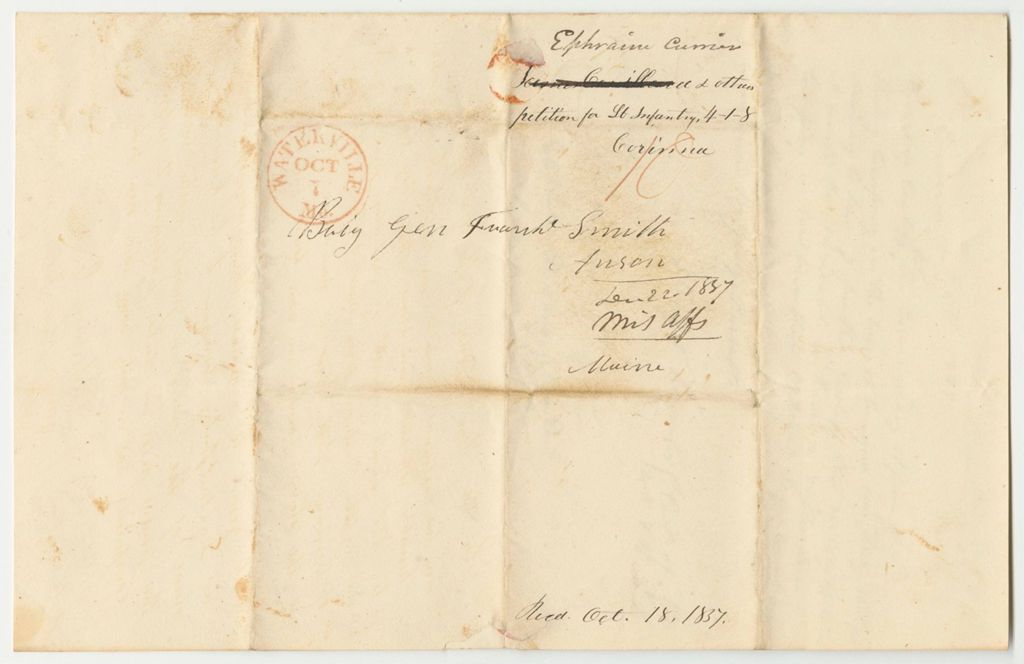 Ephraim Currier
& others
petition for Lt Infantry, 4-1-8
Corinna
10
WATERVILLE
OCT
7
Me.
Brig Gen Frank Smith
Anson
Dec 22, 1837
Mil Affs
Maine
Recd. Oct. 18, 1837.